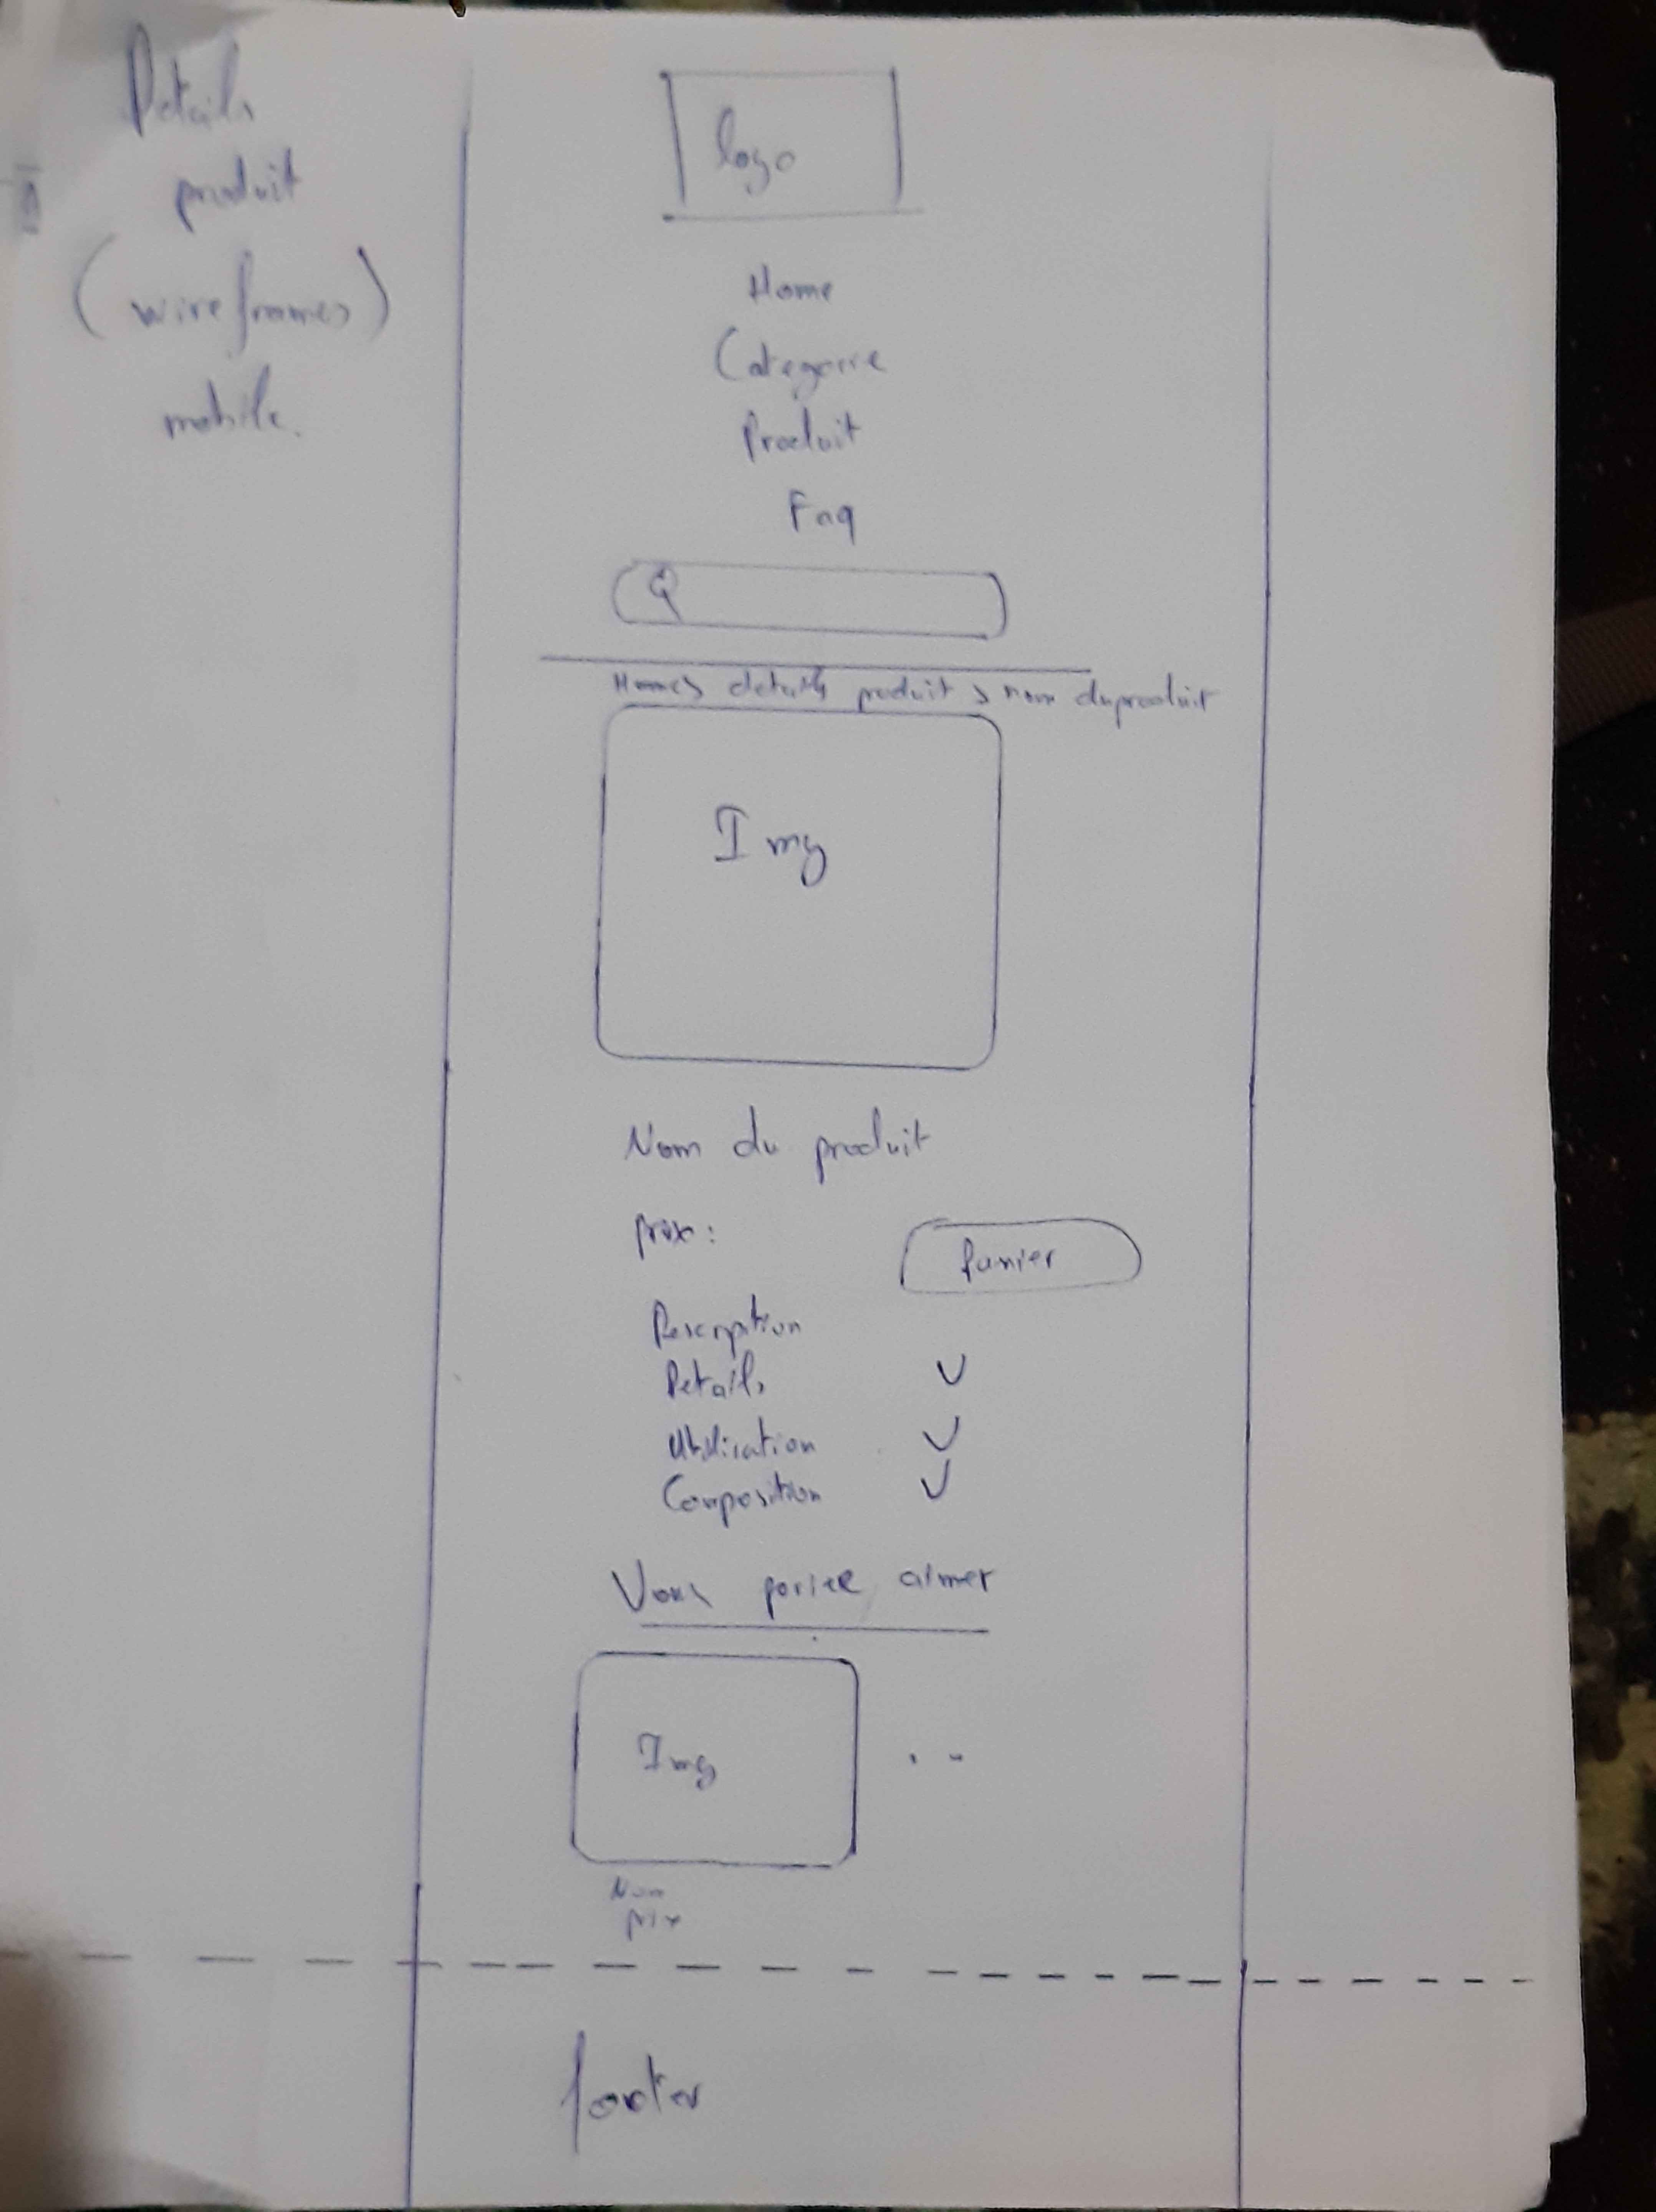 Details
produit
(wireframes)
mobile.
logo
Home
Categorie
Produit
Faq
Home> details produit > nom du produit
Img
Nom du produit
prix :
Panier
Description
Details
Utilisation
Composition
Vous aimer
Img
Nom
prix
footer